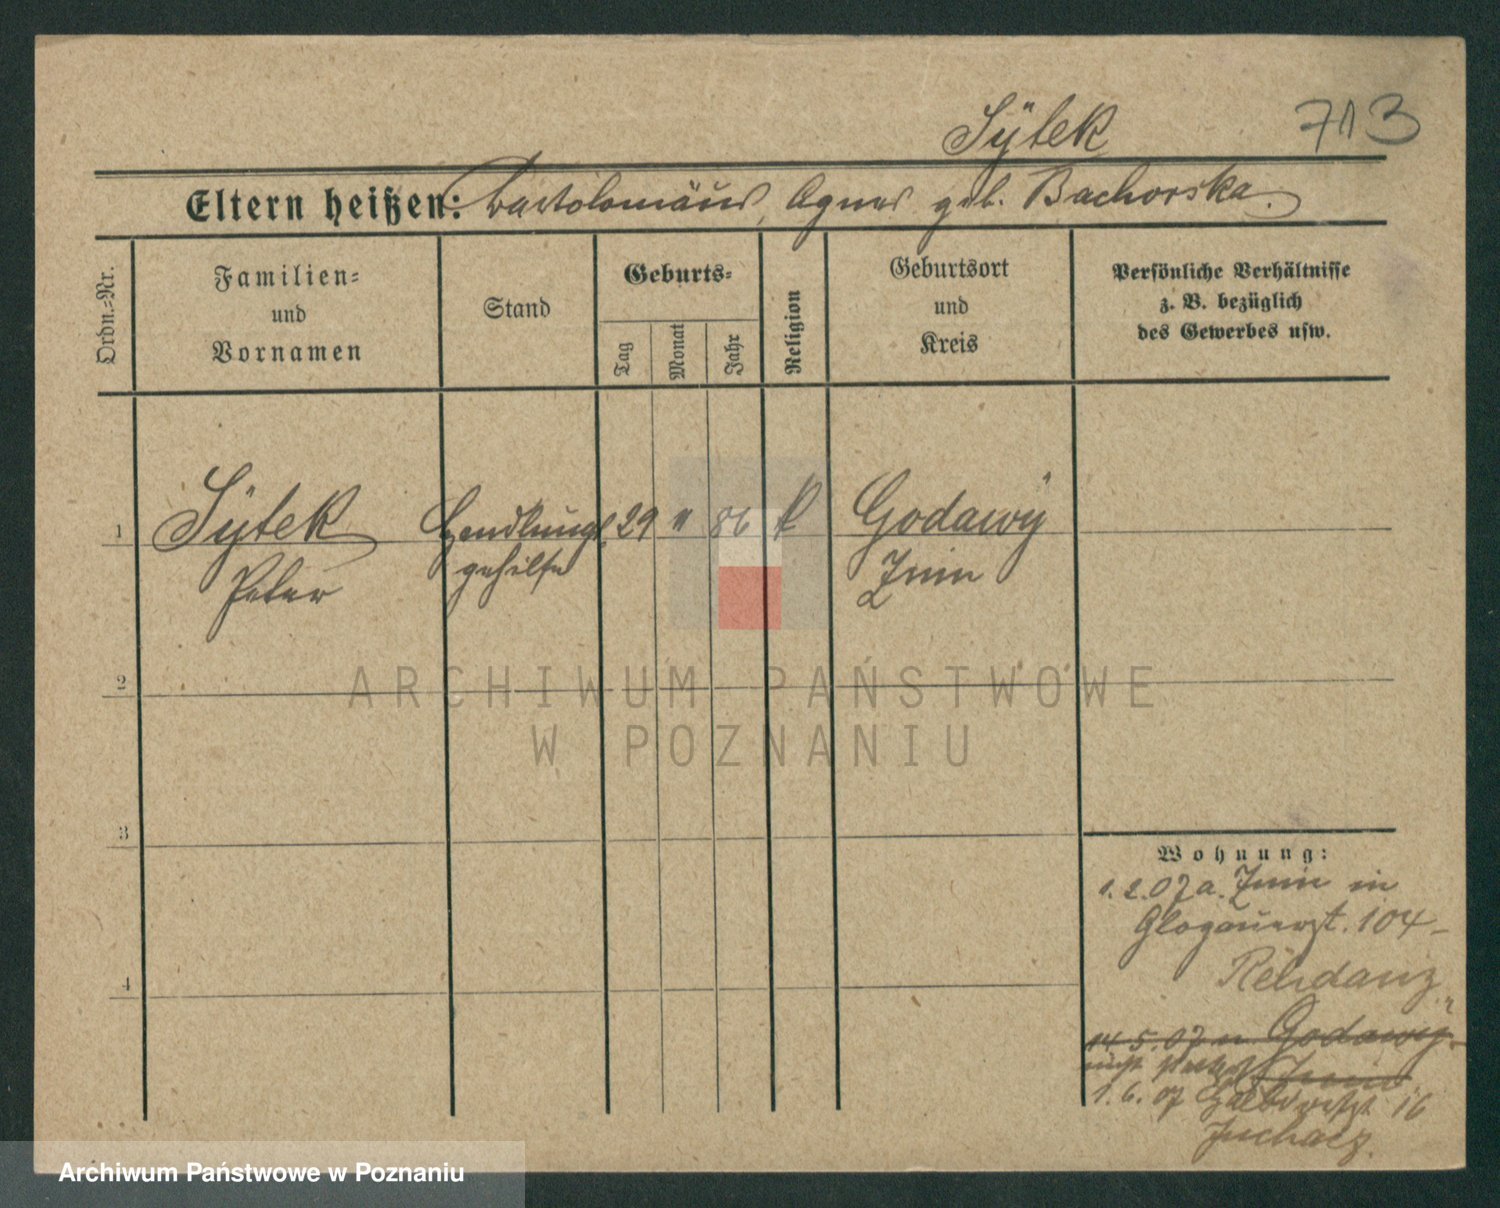 Sÿtek 713
Eltern heißen: Bartolomäus, Agnes geb. Bachorska.
Ordn.-Nr.
Familien-
und
Vornamen
Stand
Geburts-
Tag
Monat
Jahr
Religion
Geburtsort
und
Kreis
Persönliche Verhältnisse
z. B. bezüglich
des Gewerbes usw.
1 Sÿtek Handlungs 29 86 k Godawÿ
Peter gehilfe Znin
2
3
4
ARCHIWUM PAŃSTWOWE
W POZNANIU
Wohnung:
1.2.07 a. Znin in
Glogauerst. 104
Rehdanz
14.5.07 n. Godawÿ
nicht Znin
1.6.07 16
Juchacz.
Archiwum Państwowe w Poznaniu